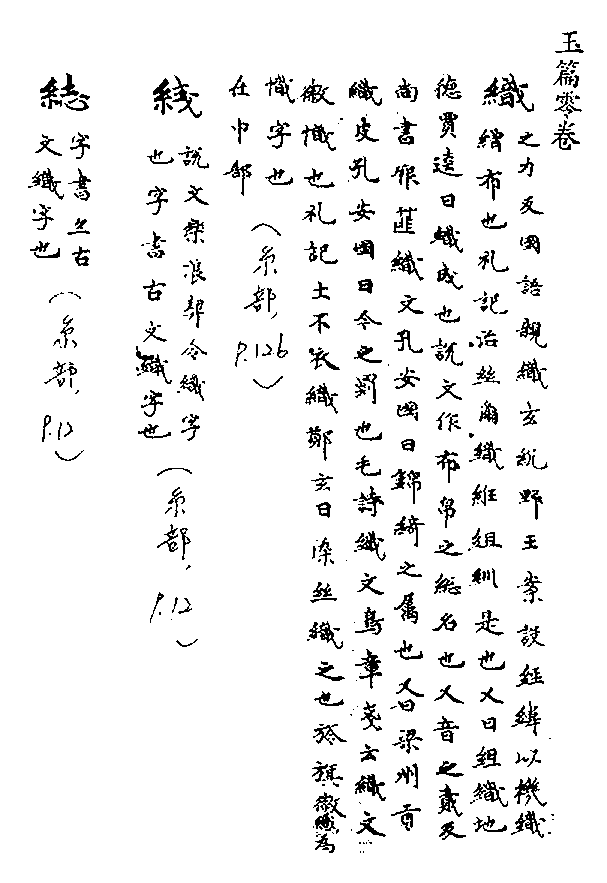 玉篇零卷
織 之力反國語親織玄紞野王案設經緯以機織
繒布也礼記治絲繭織紝組紃是也又曰組織地
德賈逵曰織成也說文作布帛之総名也又音之貳反
尚書厥篚織文孔安國曰錦綺之属也又曰梁州貢
織皮孔安國曰今之罽也毛詩織文鳥章箋云織文
徽幟也礼記士不衣織鄭玄曰染絲織之也於旗徽織為
幟字也
在巾部 (糸部, P.126)
䋎 說文樂浪挈令織字
也字書古文織字也 (糸部, P.12)
綕 字書亦古
文織字也 (糸部, P.12)